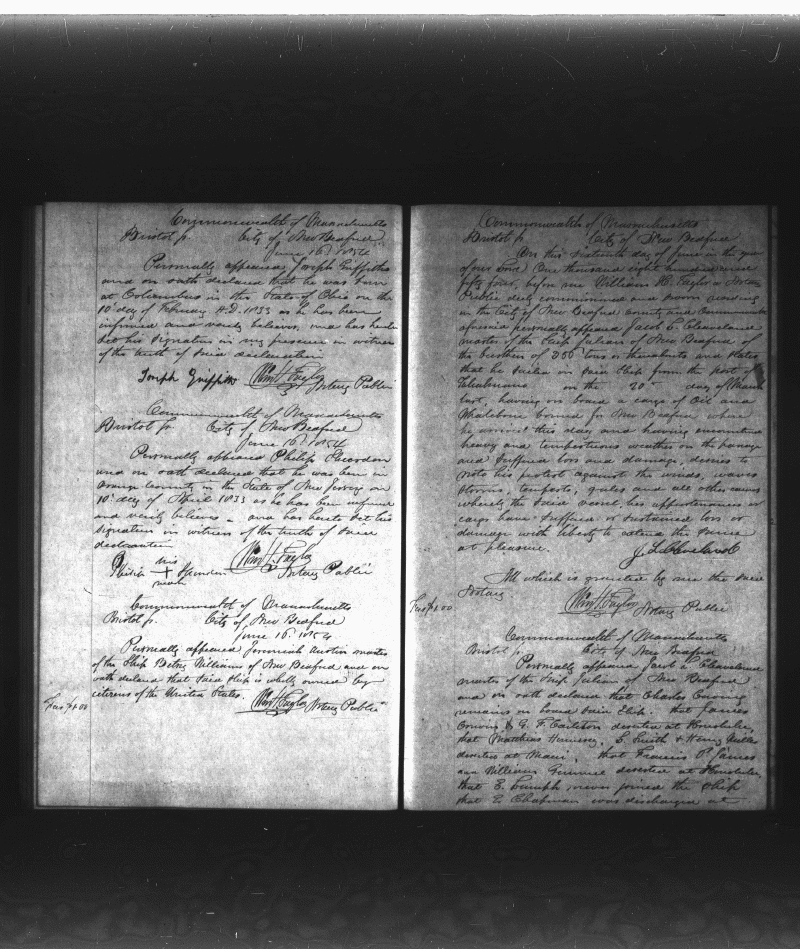 Commonwealth of Massachusetts
Bristol ss. City of New Bedford
June 16. 1854
Personally appeared Joseph Griffiths
and on oath declared that he was born
at Columbus in the State of Ohio on the
10 day of February A.D. 1833 as he has been
informed and verily believes, and has hereto
set his signature in my presence in witness
of the truth of said declaration
Joseph Griffiths Wm H. Taylor Notary Public
Commonwealth of Massachusetts
Bristol ss. City of New Bedford
June 16. 1854
Personally appeared Philip
and on oath declared that he was born in
Orange County in the State of New Jersey on
10 day of April 1833 as he has been informed
and verily believes - and has hereto set his
signature in witness of the truth of said
declaration
his
Philip + Wm H. Taylor
mark Notary Public
Commonwealth of Massachusetts
Bristol ss. City of New Bedford
June 16. 1854
Personally appeared Jeremiah Austin master
of the Ship Betsey Williams of New Bedford and on
oath declared that said ship is wholly owned by
citizens of the United States.
Fees $1.00 Wm H. Taylor Notary Public
Commonwealth of Massachusetts
Bristol ss. City of New Bedford
On this sixteenth day of June in the year
of our Lord One thousand eight hundred and
fifty four, before me William H. Taylor a Notary
Public duly commissioned and sworn residing
in the City of New Bedford county and Commonwealth
aforesaid personally appeared Jacob L. Cleaveland
master of the Ship Julian of New Bedford of
the burthen of 356 tons or thereabouts and states
that he sailed in said Ship from the port of
Talcahuano on the 20 day of March
last, having on board a cargo of Oil and
Whalebone bound for New Bedford where
he arrived this day and having encountered
heavy and tempestuous weather on the passage
and suffered loss and damage, desires to
note his protest against the winds, waves
storms, tempests, gales and all other causes
whereby the said vessel her appurtenances or
cargo have suffered or sustained loss or
damage with liberty to extend the same
at pleasure. J. L. Cleaveland
All which is granted by me the said
Notary
Fees $1.00 Wm H. Taylor Notary Public
Commonwealth of Massachusetts
Bristol ss. City of New Bedford
Personally appeared Jacob L. Cleaveland
master of the Ship Julian of New Bedford
and on oath declared that Charles
remains on board said Ship. that James
& G. F. Carlston deserted at Honolulu,
that Matthias Hennesey, L. Smith & Henry
deserted at Maui, that Francis P. James
and William deserted at Honolulu,
that E. never joined the ship
that E. Chapman was discharged at